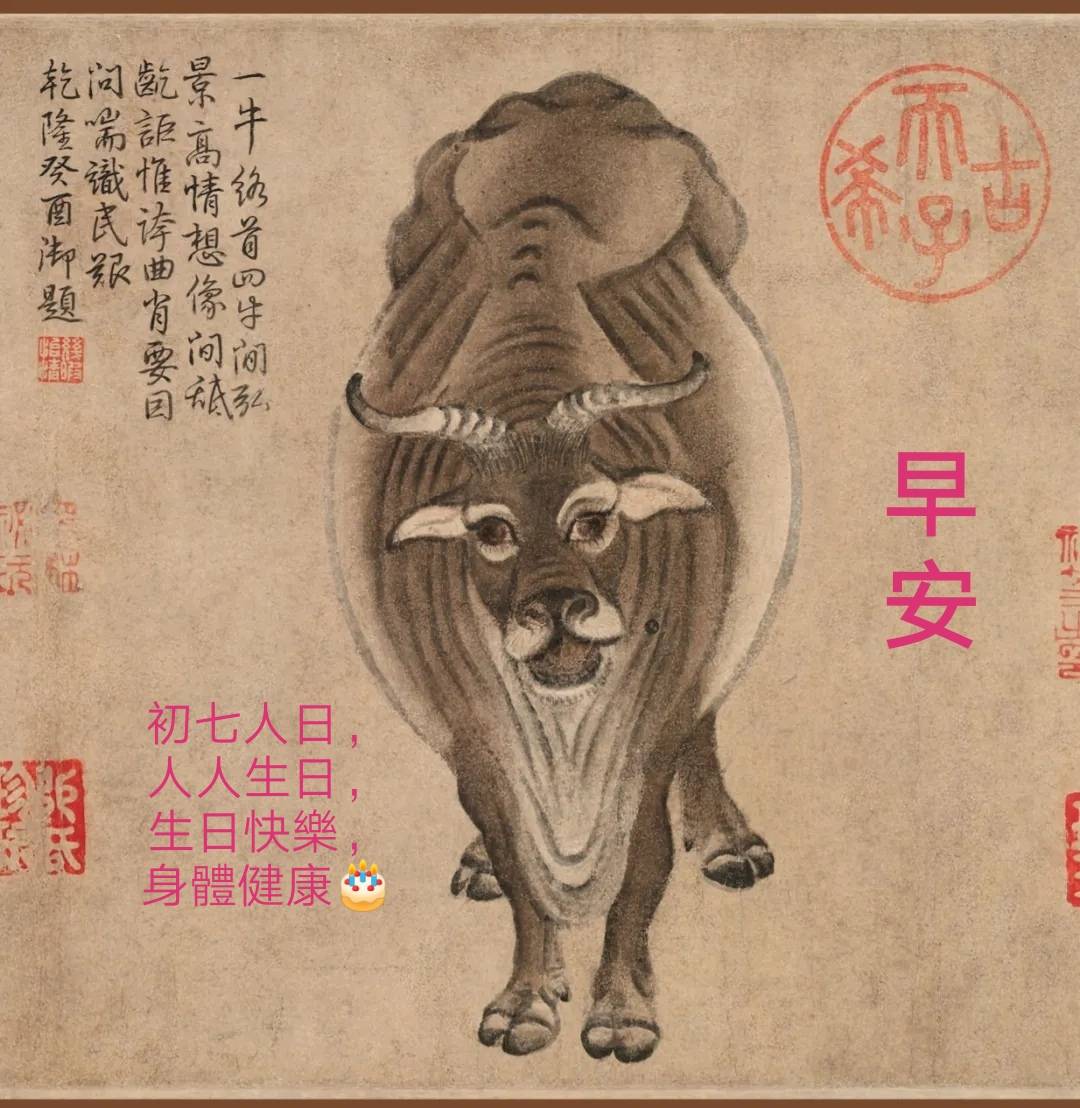 一牛絡首四牛閒弘
景高情想像間舐
齕詎惟誇曲肖要因
問喘識民艱
乾隆癸酉御題
幾暇怡情
古希天子
早安
初七人日,
人人生日,
生日快樂,
身體健康🎂